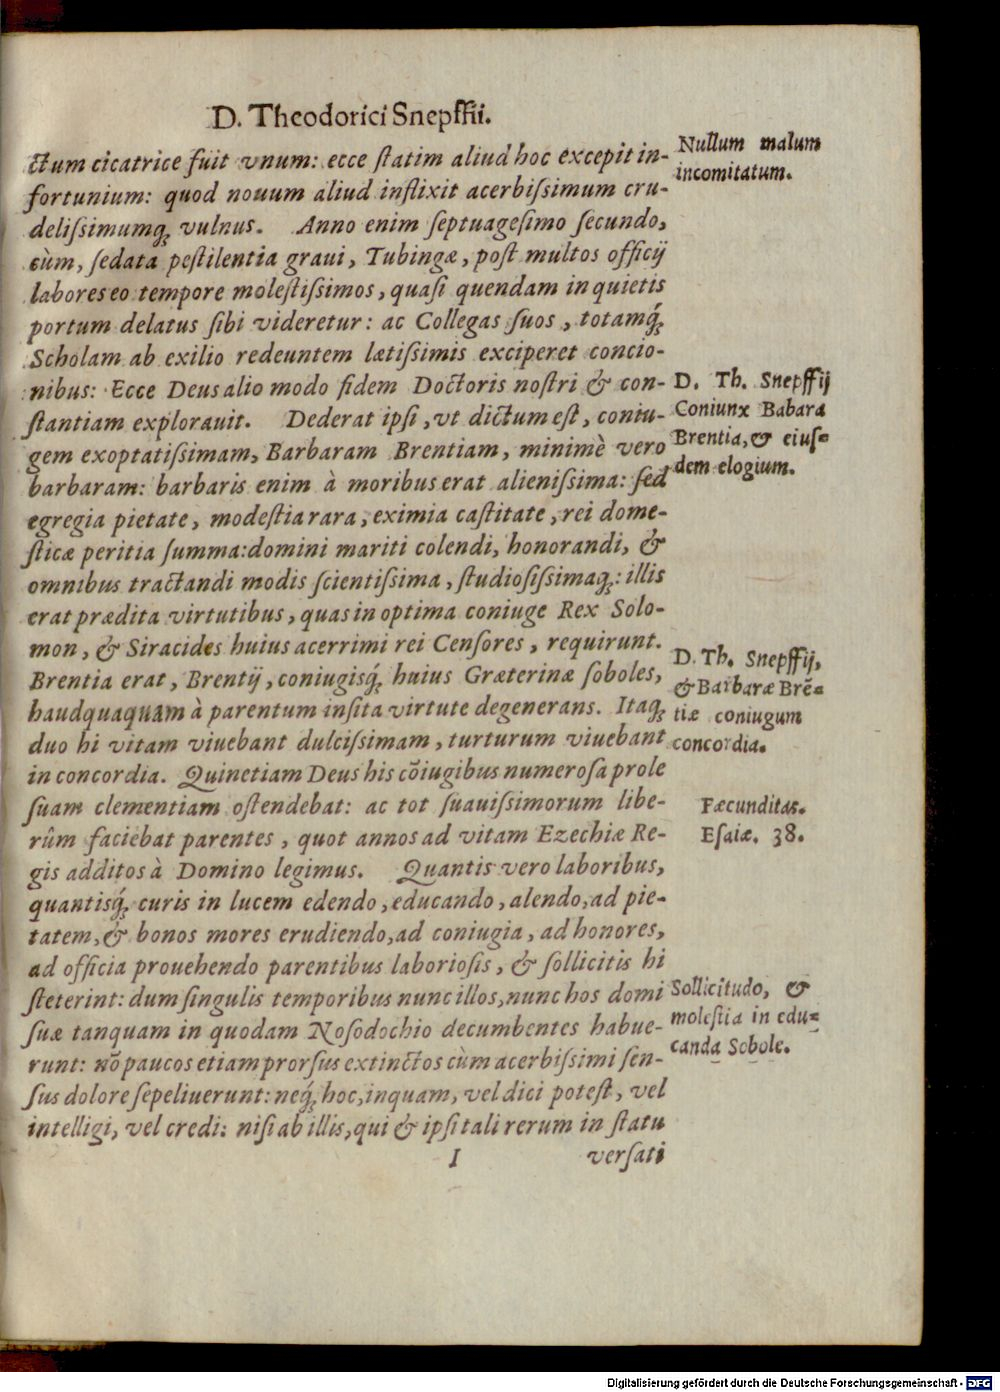 D. Theodorici Snepffii.
ctum cicatrice fuit vnum: ecce ſtatim aliud hoc excepit in-
fortunium: quod nouum aliud inflixit acerbiſsimum cru-
deliſsimumq́; vulnus. Anno enim ſeptuageſimo ſecundo,
cùm, ſedata peſtilentia graui, Tubingæ, poſt multos officij
labores eo tempore moleſtiſsimos, quaſi quendam in quietis
portum delatus ſibi videretur: ac Collegas ſuos, totamq́;
Scholam ab exilio redeuntem lætiſsimis exciperet concio-
nibus: Ecce Deus alio modo fidem Doctoris noſtri & con-
ſtantiam explorauit. Dederat ipſi, vt dictum eſt, coniu-
gem exoptatiſsimam, Barbaram Brentiam, minimè vero
barbaram: barbaris enim à moribus erat alieniſsima: ſed
egregia pietate, modeſtia rara, eximia caſtitate, rei dome-
ſticæ peritia ſumma: domini mariti colendi, honorandi, &
omnibus tractandi modis ſcientiſsima, ſtudioſiſsimaq;: illis
erat prædita virtutibus, quas in optima coniuge Rex Solo-
mon, & Siracides huius acerrimi rei Cenſores, requirunt.
Brentia erat, Brentij, coniugisq́; huius Græterinæ ſoboles,
haudquaquam à parentum inſita virtute degenerans. Itaq;
duo hi vitam viuebant dulciſsimam, turturum viuebant
in concordia. Quinetiam Deus his cōiugibus numeroſa prole
ſuam clementiam oſtendebat: ac tot ſuauiſsimorum libe-
rûm faciebat parentes, quot annos ad vitam Ezechiæ Re-
gis additos à Domino legimus. Quantis vero laboribus,
quantisq́; curis in lucem edendo, educando, alendo, ad pie-
tatem, & bonos mores erudiendo, ad coniugia, ad honores,
ad officia prouehendo parentibus laborioſis, & ſollicitis hi
ſteterint: dum ſingulis temporibus nunc illos, nunc hos domi
ſuæ tanquam in quodam Noſodochio decumbentes habue-
runt: nō paucos etiam prorſus extinctos cùm acerbiſsimi ſen-
ſus dolore ſepeliuerunt: neq́; hoc, inquam, vel dici poteſt, vel
intelligi, vel credi: niſi ab illis, qui & ipſi tali rerum in ſtatu
I
verſati
Nullum malum
incomitatum.
D. Th. Snepffij
Coniunx Babara
Brentia, & eiuſ-
dem elogium.
D. Th. Snepffij,
& Barbaræ Brē-
tiæ coniugum
concordia.
Fæcunditas.
Eſaiæ. 38.
Sollicitudo, &
moleſtia in edu-
canda Sobole.
Digitalisierung gefördert durch die Deutsche Forschungsgemeinschaft - DFG